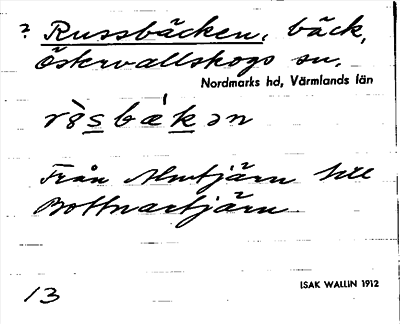 ? Russbäcken, bäck,
Östervallskogs sn.
Nordmarks hd, Värmlands län
Från Almtjärn till
Bottnartjärn
13
ISAK WALLIN 1912